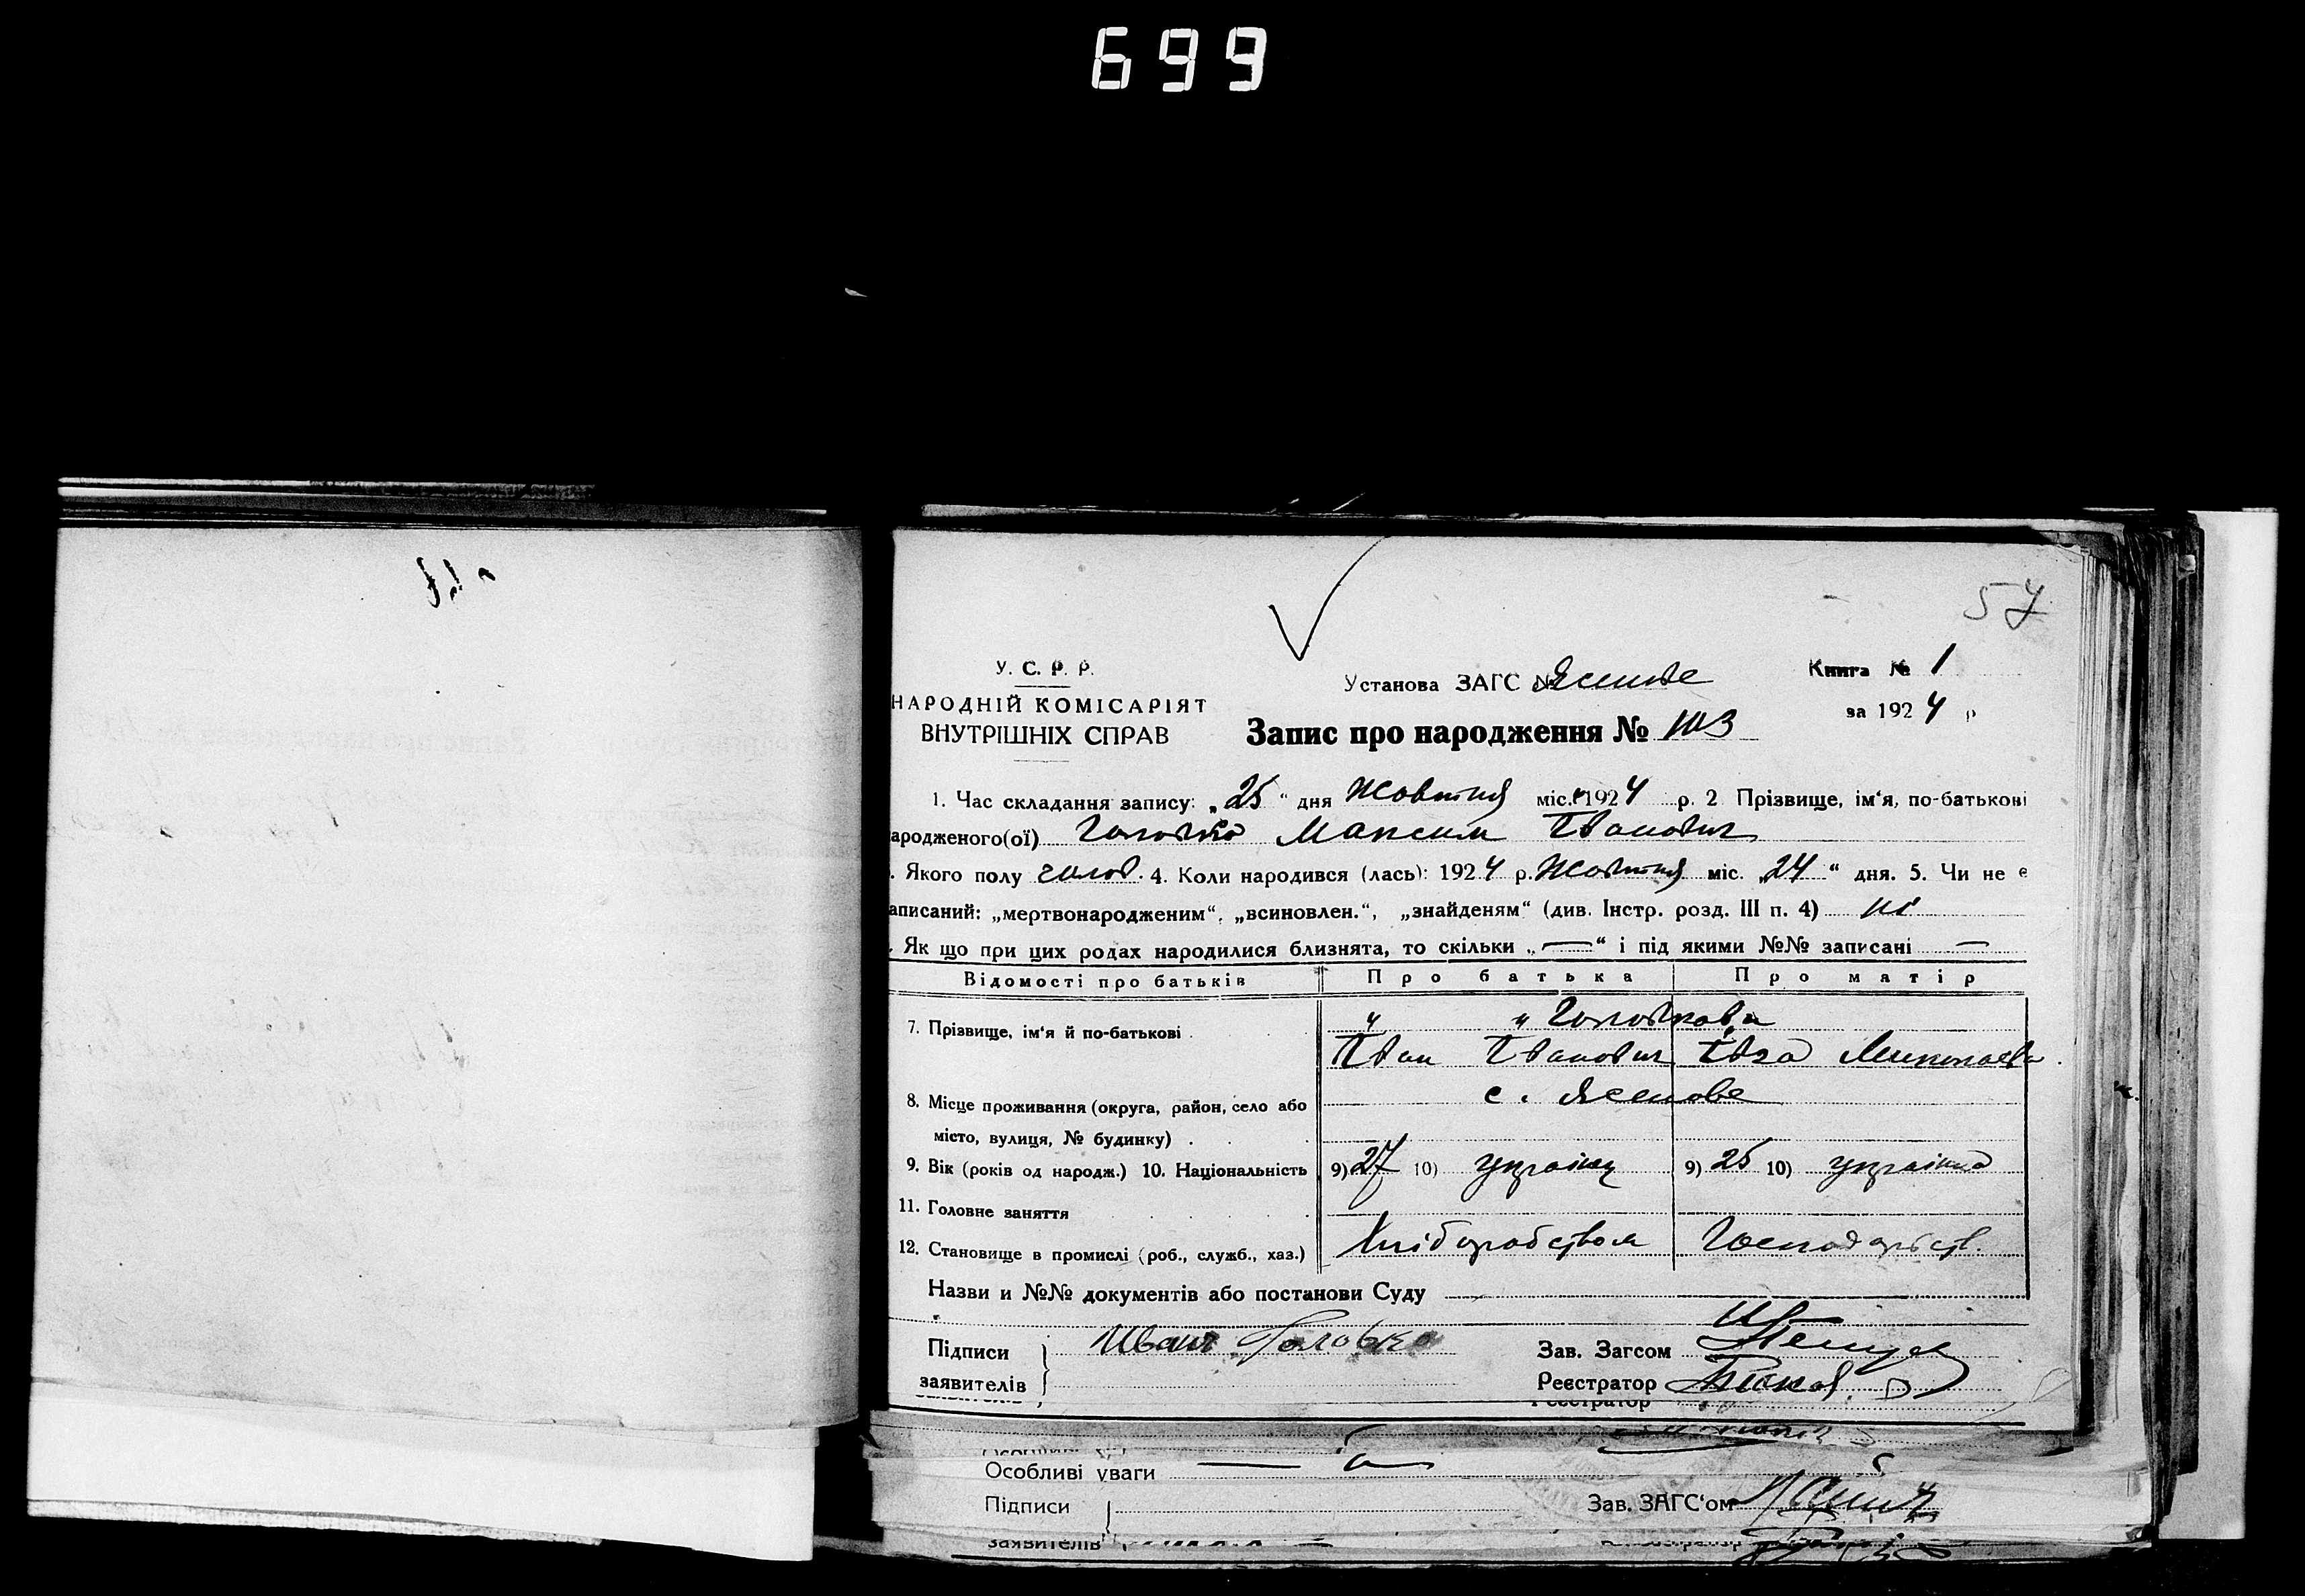 699
57
У. С. Р. Р.
НАРОДНІЙ КОМІСАРІЯТ
ВНУТРІШНІХ СПРАВ
Установа ЗАГС № Ясенове
Книга № 1
за 1924 р
Запис про народження № 103
1. Час складання запису: „25“ дня Жовтня міс. 1924 р. 2 Прізвище, ім‘я, по-батькові
ародженого(ої) Головко Максим Іванович
. Якого полу чолов. 4. Коли народився (лась): 1924 р. Жовтня міс. „24“ дня. 5. Чи не є
аписаний: „мертвонародженим“, „всиновлен.“, „знайденям“ (див. Інстр. розд. III п. 4) ні
. Як що при цих родах народилися близнята, то скільки „—“ і під якими №№ записані —
Відомості про батьків Про батька Про матір
7. Прізвище, ім‘я й по-батькові
„ „ Головкови
Іван Іванович Івга Миколаєва
8. Місце проживання (округа, район, село або
місто, вулиця, № будинку)
с. Ясенове
9. Вік (років од народж.) 10. Національність 9) 27 10) українц 9) 25 10) українка
11. Головне заняття
12. Становище в промислі (роб., служб., хаз.) Хліборобством Господарств.
Назви и №№ документів або постанови Суду
Підписи
заявителів
Иван Головко
Зав. Загсом
Реєстратор
Реєстратор
Особливі уваги
Підписи
Зав. ЗАГС‘ом
заявителів